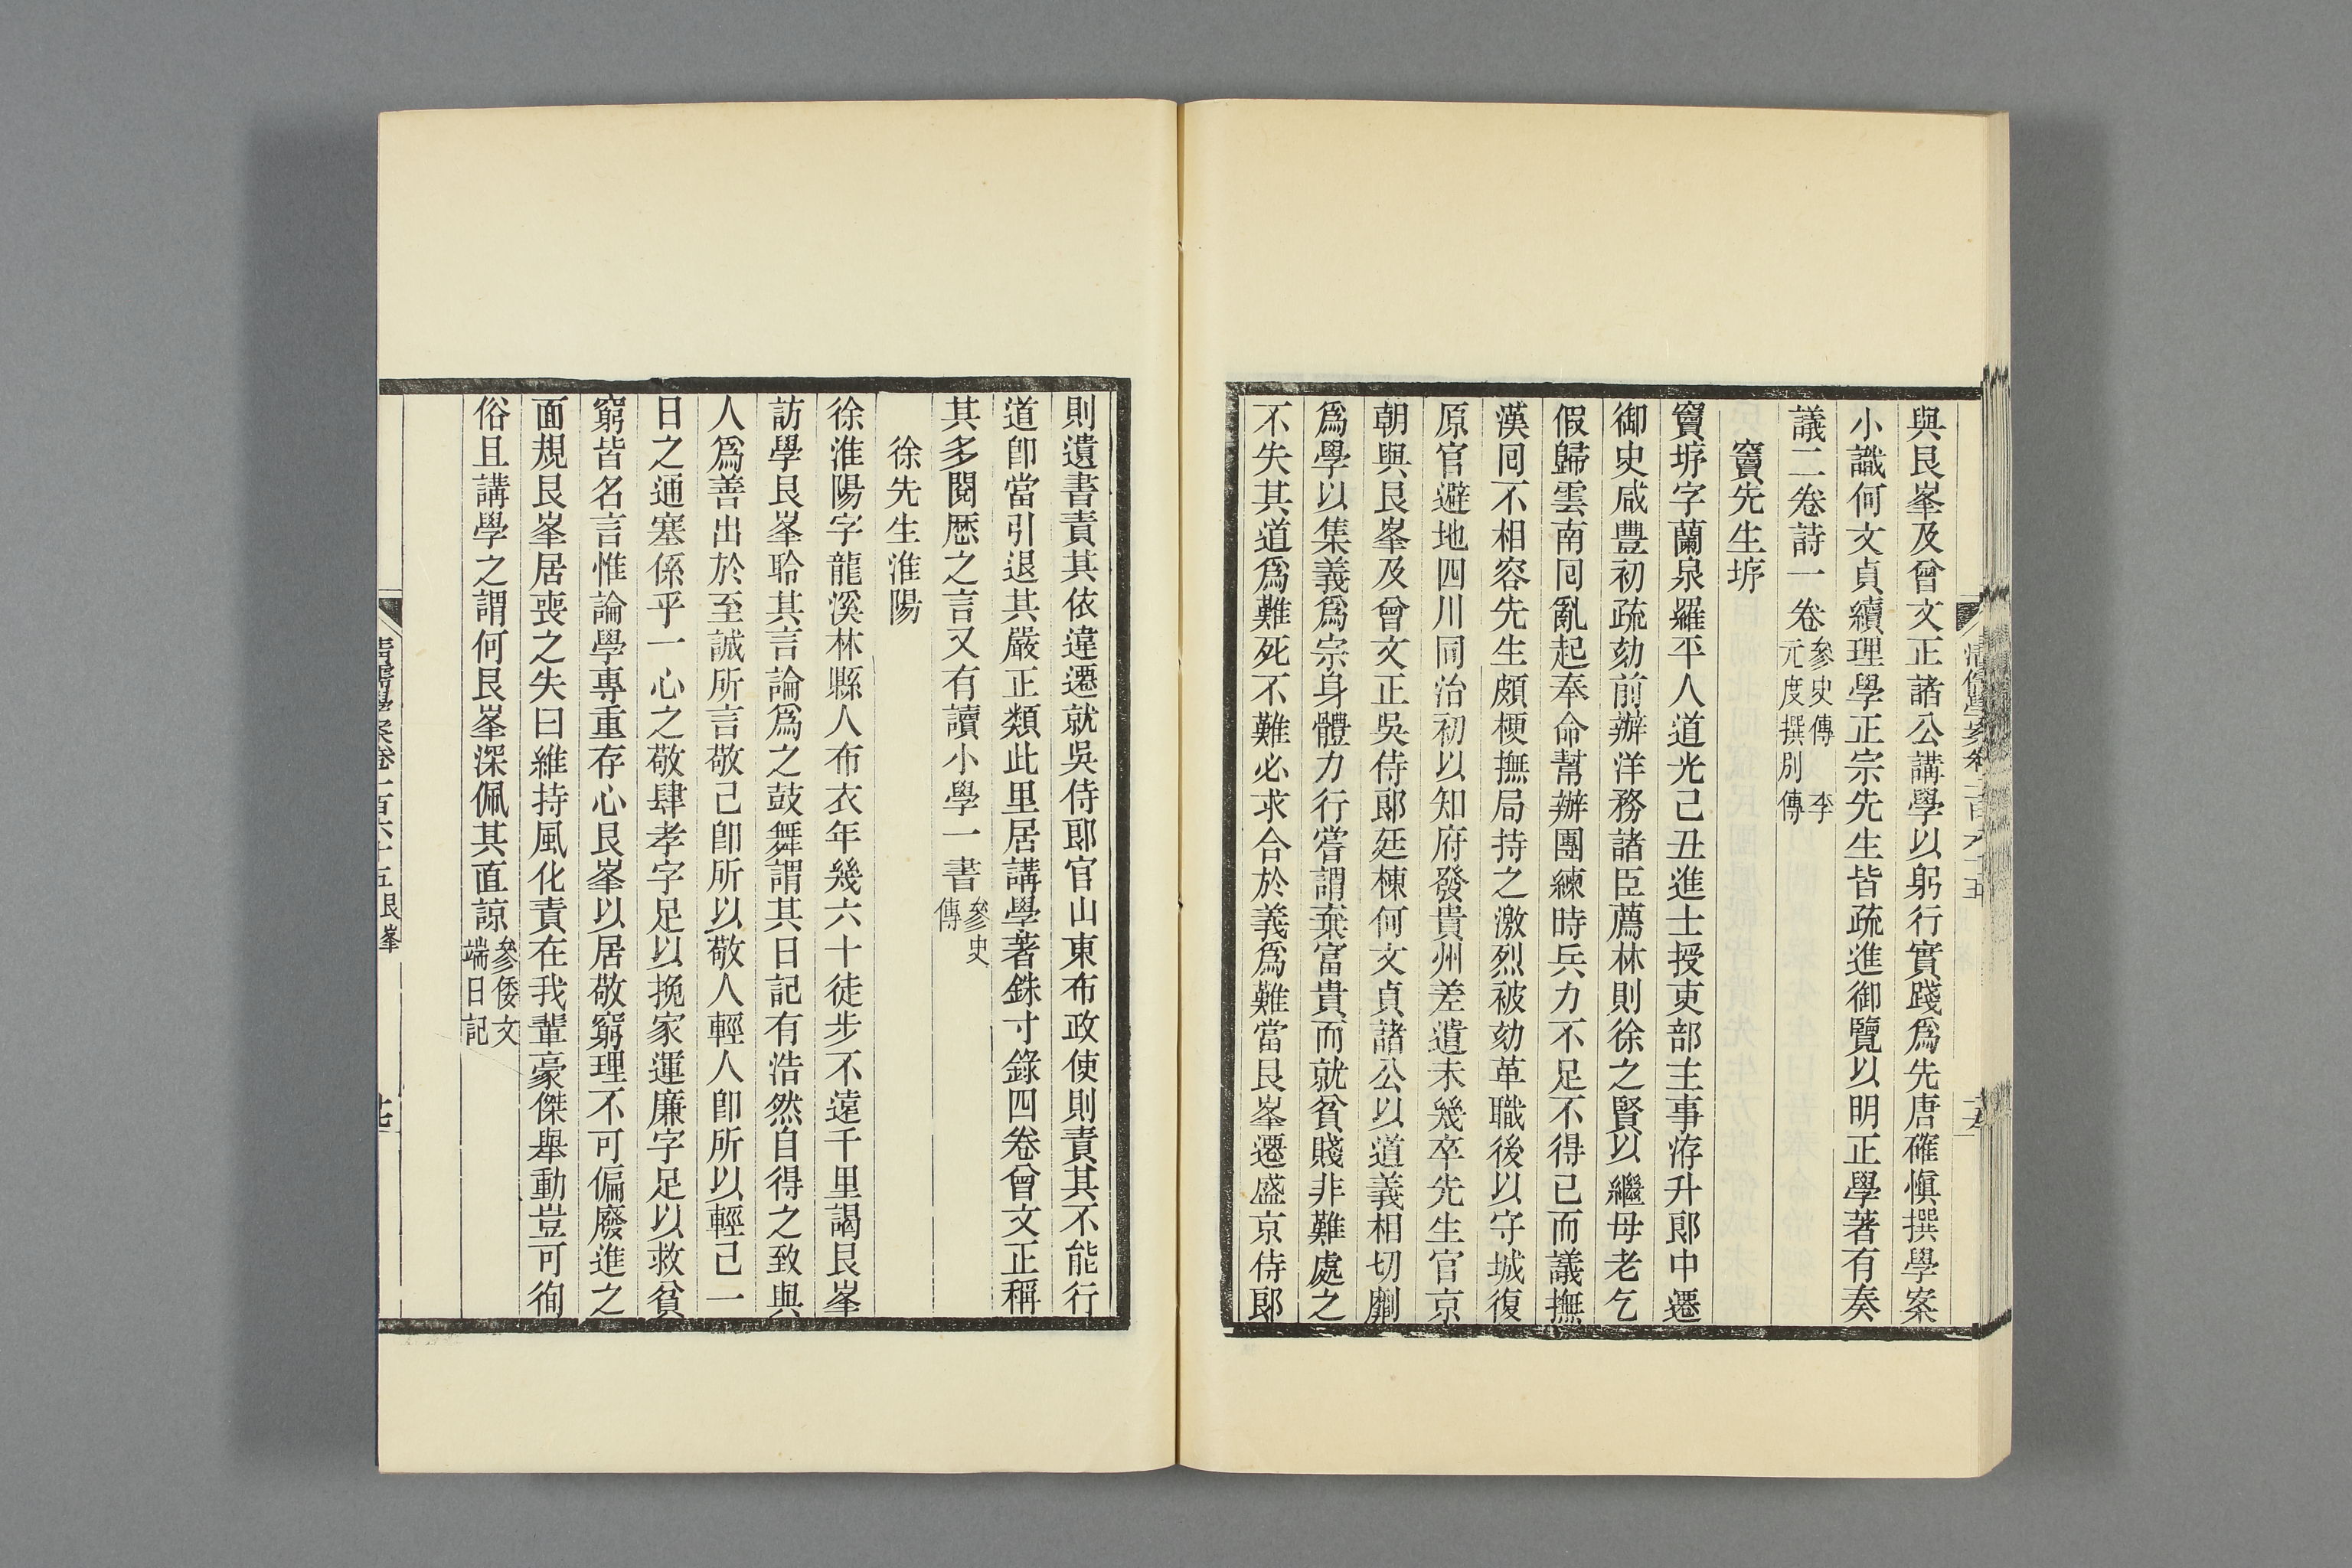 與艮峯及曾文正諸公講學以躬行實踐爲先唐確慎撰學案
小識何文貞續理學正宗先生皆疏進御覽以明正學著有奏
議二卷詩一卷參史傳 李元度撰別傳
竇先生垿
竇垿字蘭泉羅平人道光己丑進士授吏部主事洊升郎中遷
御史咸豐初疏劾前辦洋務諸臣薦林則徐之賢以繼母老乞
假歸雲南囘亂起奉命幫辦團練時兵力不足不得已而議撫
漢囘不相容先生頗梗撫局持之激烈被劾革職後以守城復
原官避地四川同治初以知府發貴州差遣未幾卒先生官京
朝與艮峯及曾文正吳侍郎廷棟何文貞諸公以道義相切劘
爲學以集義爲宗身體力行嘗謂棄富貴而就貧賤非難處之
不失其道爲難死不難必求合於義爲難當艮峯遷盛京侍郎
則遺書責其依違遷就吳侍郎官山東布政使則責其不能行
道卽當引退其嚴正類此里居講學著銖寸錄四卷曾文正稱
其多閱歷之言又有讀小學一書參史傳
徐先生淮陽
徐淮陽字龍溪林縣人布衣年幾六十徒步不遠千里謁艮峯
訪學艮峯聆其言論爲之鼓舞謂其日記有浩然自得之致與
人爲善出於至誠所言敬己卽所以敬人輕人卽所以輕己一
日之通塞係乎一心之敬肆孝字足以挽家運廉字足以救貧
窮皆名言惟論學專重存心艮峯以居敬窮理不可偏廢進之
面規艮峯居喪之失曰維持風化責在我輩豪傑舉動豈可徇
俗且講學之謂何艮峯深佩其直諒參倭文端日記
清儒學案卷一百六十五艮峯